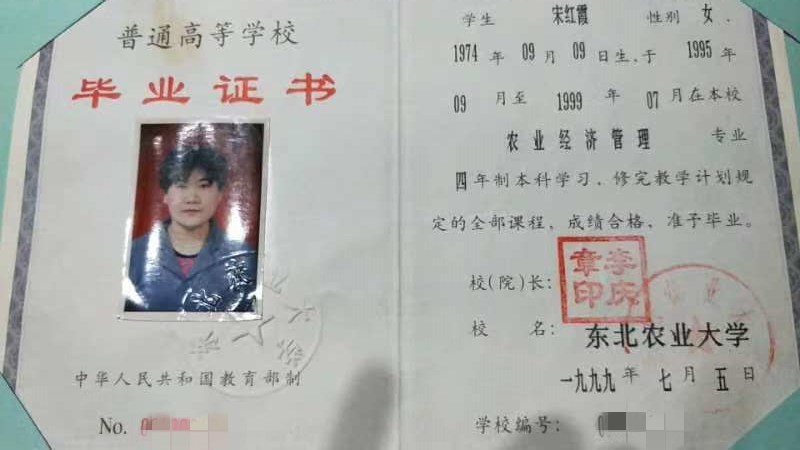 普通高等学校
毕业证书
中华人民共和国教育部制
No.
学生 宋红霞 性别 女，
1974 年 09 月 09 日生，于 1995 年
09 月至 1999 年 07 月在本校
农业经济管理 专业
四年制本科学习，修完教学计划规
定的全部课程，成绩合格，准予毕业。
校(院)长：
李庆章印
校 名：
东北农业大学
一九九九年 七月 五日
学校编号：